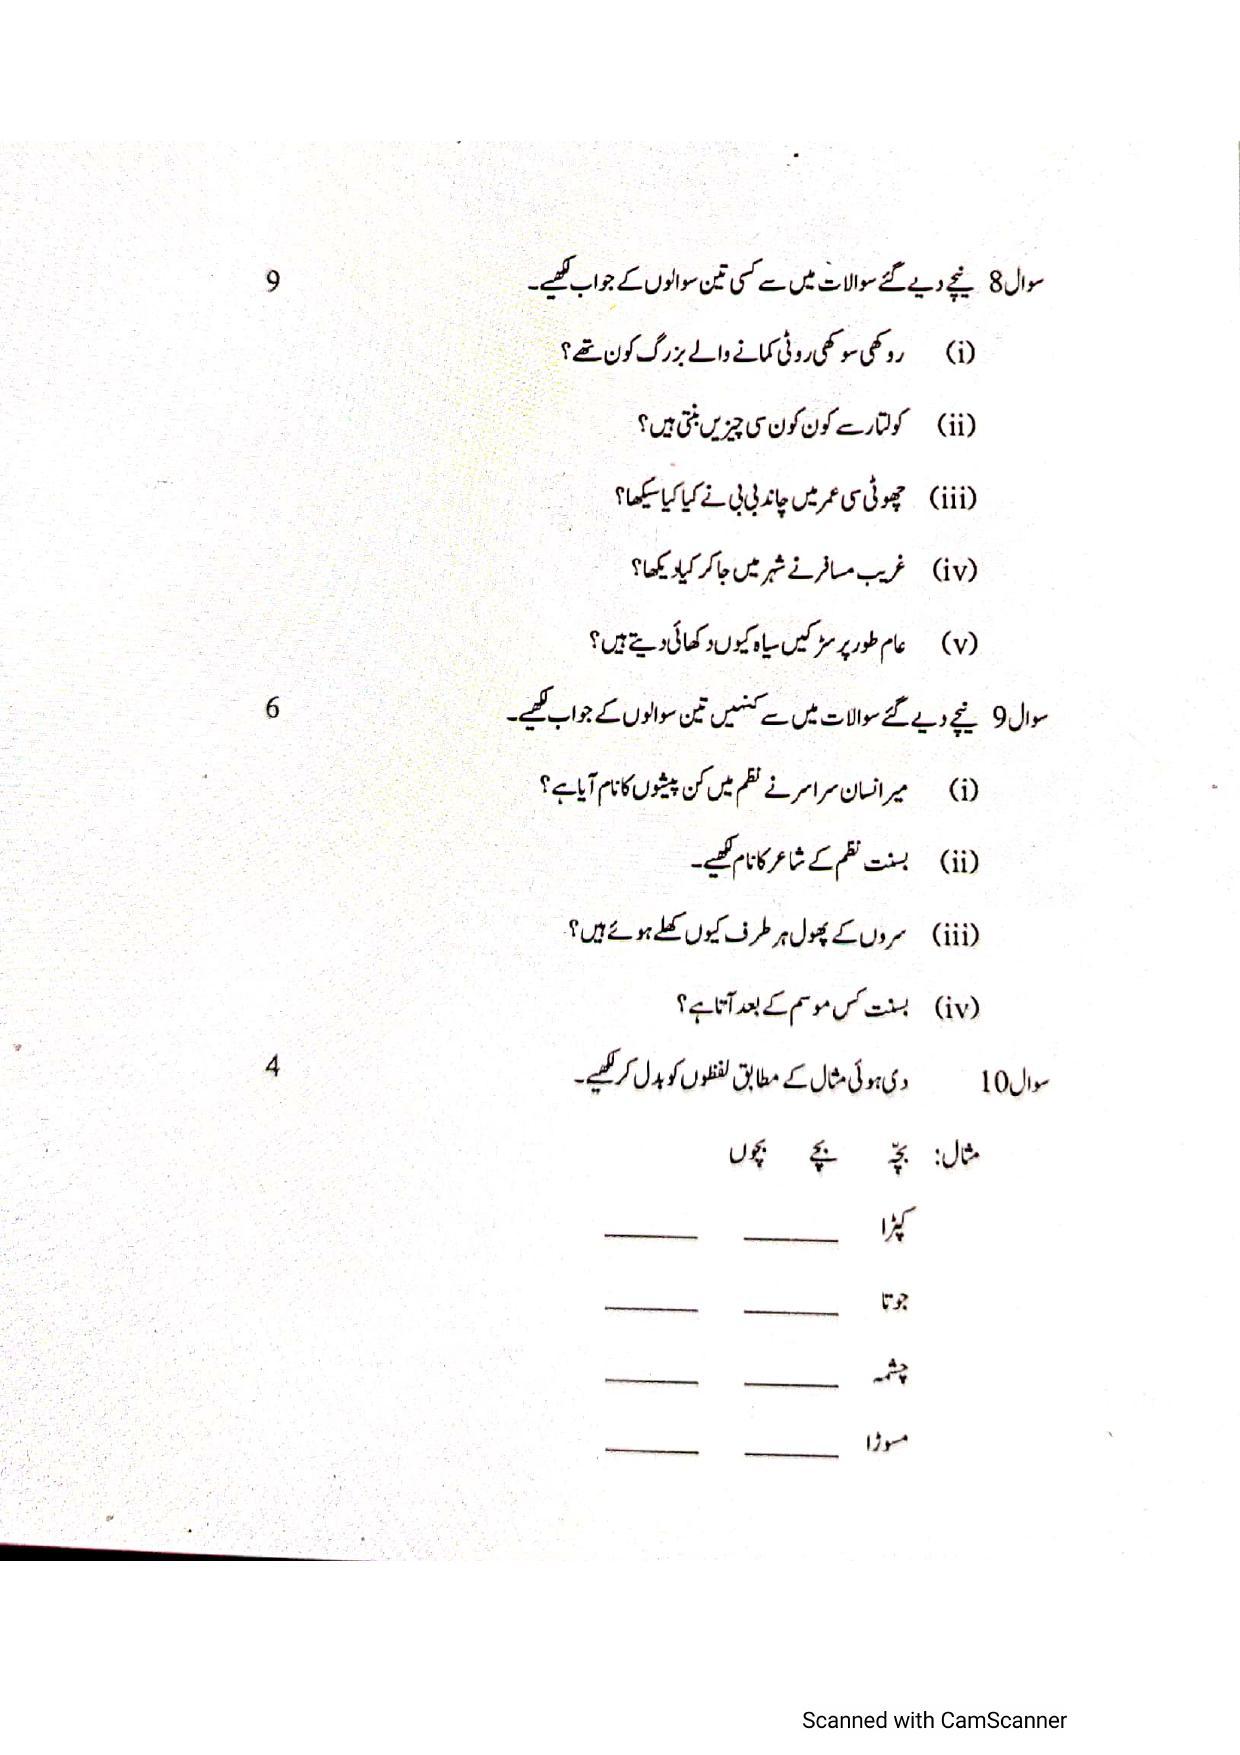 سوال8 نیچے دیے گئے سوالات میں سے کسی تین سوالوں کے جواب لکھیے۔ 9
(i) روکھی سوکھی روٹی کمانے والے بزرگ کون تھے؟
(ii) کولتار سے کون کون سی چیزیں بنتی ہیں؟
(iii) چھوٹی سی عمر میں چاند بی بی نے کیا کیا سیکھا؟
(iv) غریب مسافر نے شہر میں جا کر کیا دیکھا؟
(v) عام طور پر سڑکیں سیاہ کیوں دکھائی دیتے ہیں؟
سوال9 نیچے دیے گئے سوالات میں سے کنہیں تین سوالوں کے جواب لکھیے۔ 6
(i) میر انسان سراسر نے نظم میں کن پیشوں کا نام آیا ہے؟
(ii) بسنت نظم کے شاعر کا نام لکھیے۔
(iii) سروں کے پھول ہر طرف کیوں کھلے ہوئے ہیں؟
(iv) بسنت کس موسم کے بعد آتا ہے؟
سوال10 دی ہوئی مثال کے مطابق لفظوں کو بدل کر لکھیے۔ 4
مثال: بچّہ بچے بچوں
کپڑا
جوتا
چشمہ
مسوڑا
Scanned with CamScanner